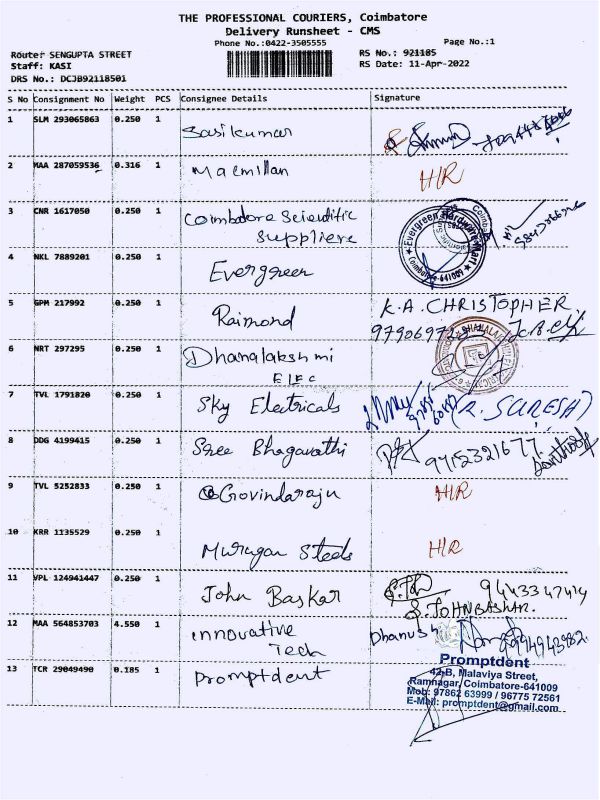 THE PROFESSIONAL COURIERS, Coimbatore
Delivery Runsheet - CMS
Phone No.:0422-3505555
Page No.:1
Route: SENGUPTA STREET
RS No.: 921185
Staff: KASI
RS Date: 11-Apr-2022
DRS No.: DCJB92118501
S No Consignment No Weight PCS Consignee Details Signature
1 SLM 293065863 0.250 1 Sasikumar
2 MAA 287059536 0.316 1 Macmillan H/R
3 CNR 1617050 0.250 1 Coimbatore Scientific
Suppliers
Evergreen Hardware Mart
Coimbatore-641009
4 NKL 7889201 0.250 1 Evergreen
5 GPM 217992 0.250 1 Raimond K.A. CHRISTOPHER
6 NRT 297295 0.250 1 Dhanalakshmi
Elec
7 TVL 1791820 0.250 1 Sky Electricals (R. SURESH)
8 DDG 4199415 0.250 1 Sree Bhagavathi 97152321677
9 TVL 5252833 0.250 1 Govindaraju H/R
10 KRR 1135529 0.250 1 Murugan Steels H/R
11 VPL 124941447 0.250 1 John Baskar 9443347414
S. JOHNBASKAR.
12 MAA 564853703 4.550 1 innovative
Tech
Dhanush
13 TCR 29049490 0.185 1 Promptdent
Promptdent
42-B, Malaviya Street,
Ramnagar, Coimbatore-641009
Mob: 97862 63999 / 96775 72561
E-Mail: promptdent@gmail.com